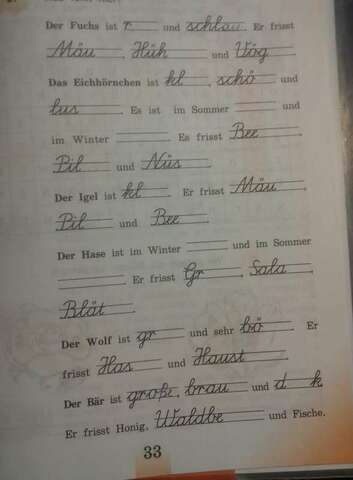 Der Fuchs ist r und schlau. Er frisst
Mäu, Hüh und Vög.
Das Eichhörnchen ist kl, schö und
lus. Es ist im Sommer und
im Winter. Es frisst Bee
Pil und Nüs.
Der Igel ist kl. Er frisst Mäu,
Pil und Bee.
Der Hase ist im Winter und im Sommer
. Er frisst Gr, Sala,
Blät.
Der Wolf ist gr und sehr bö. Er
frisst Has und Haust.
Der Bär ist große, brau und d k.
Er frisst Honig, Waldbe und Fische.
33